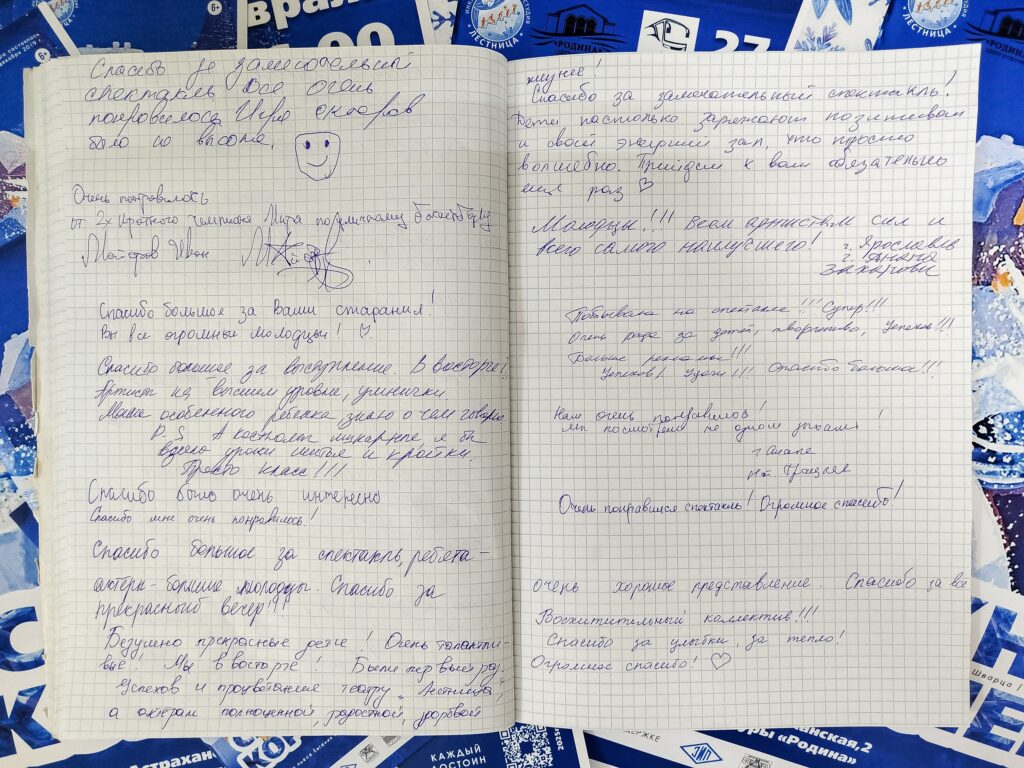 6+
врал
.00
ЛЕСТНИЦА
"РОДИНА"
27
6+
Спасибо за замечательный
спектакль. Все очень
понравилось. Игра актеров
была на высоте.
Очень понравилось
от 2х кратного чемпиона Мира по
Иван
Спасибо большое за Ваши старания!
Вы все огромные молодцы!
Спасибо большое за выступление. В восторге!
Артисты на высшем уровне, умнички
Мама особенного ребенка знаю о чем говорю
P.S. А костюмы шикарные, я бы
взяла уроки шитья и кройки.
Просто класс!!!
Спасибо было очень интересно
Спасибо мне очень понравилось!
Спасибо большое за спектакль, ребята-
актеры - большие молодцы. Спасибо за
прекрасный вечер!!!
Безумно прекрасные дети! Очень талантли-
вые!! Мы в восторге! Были первый раз.
Успехов и процветания театру "Лестница",
а актерам полноценной, радостной, здоровой
жизнее!
Спасибо за замечательный спектакль!
Дети настолько заряжают позитивом
и своей энергией зал, что просто
волшебно. Прийдем к вам обязательно
ещё раз
Молодцы!!! Всем артистам сил и
всего самого наилучшего!
г. Ярославль
Захаровы
Побывала на спектакле!!! Супер!!!
Очень рада за детей, творчество, Успехов!!!
Больше рекламы!!!
Успехов! Удачи!!! Спасибо большое!!!
Нам очень понравилось!
мы посмотрели на одном дыхании!
г. Анапа
Очень понравился спектакль! Огромное спасибо!
очень хорошее представление. Спасибо за всё
Восхитительный коллектив!!!
Спасибо за улыбки, за тепло!
Огромное спасибо!
Шварца
Астрахан
КАЖДЫЙ
ДОСТОИН
2025
ДЕРЖКЕ
ЗИП
ханская,2
ры «Родина»